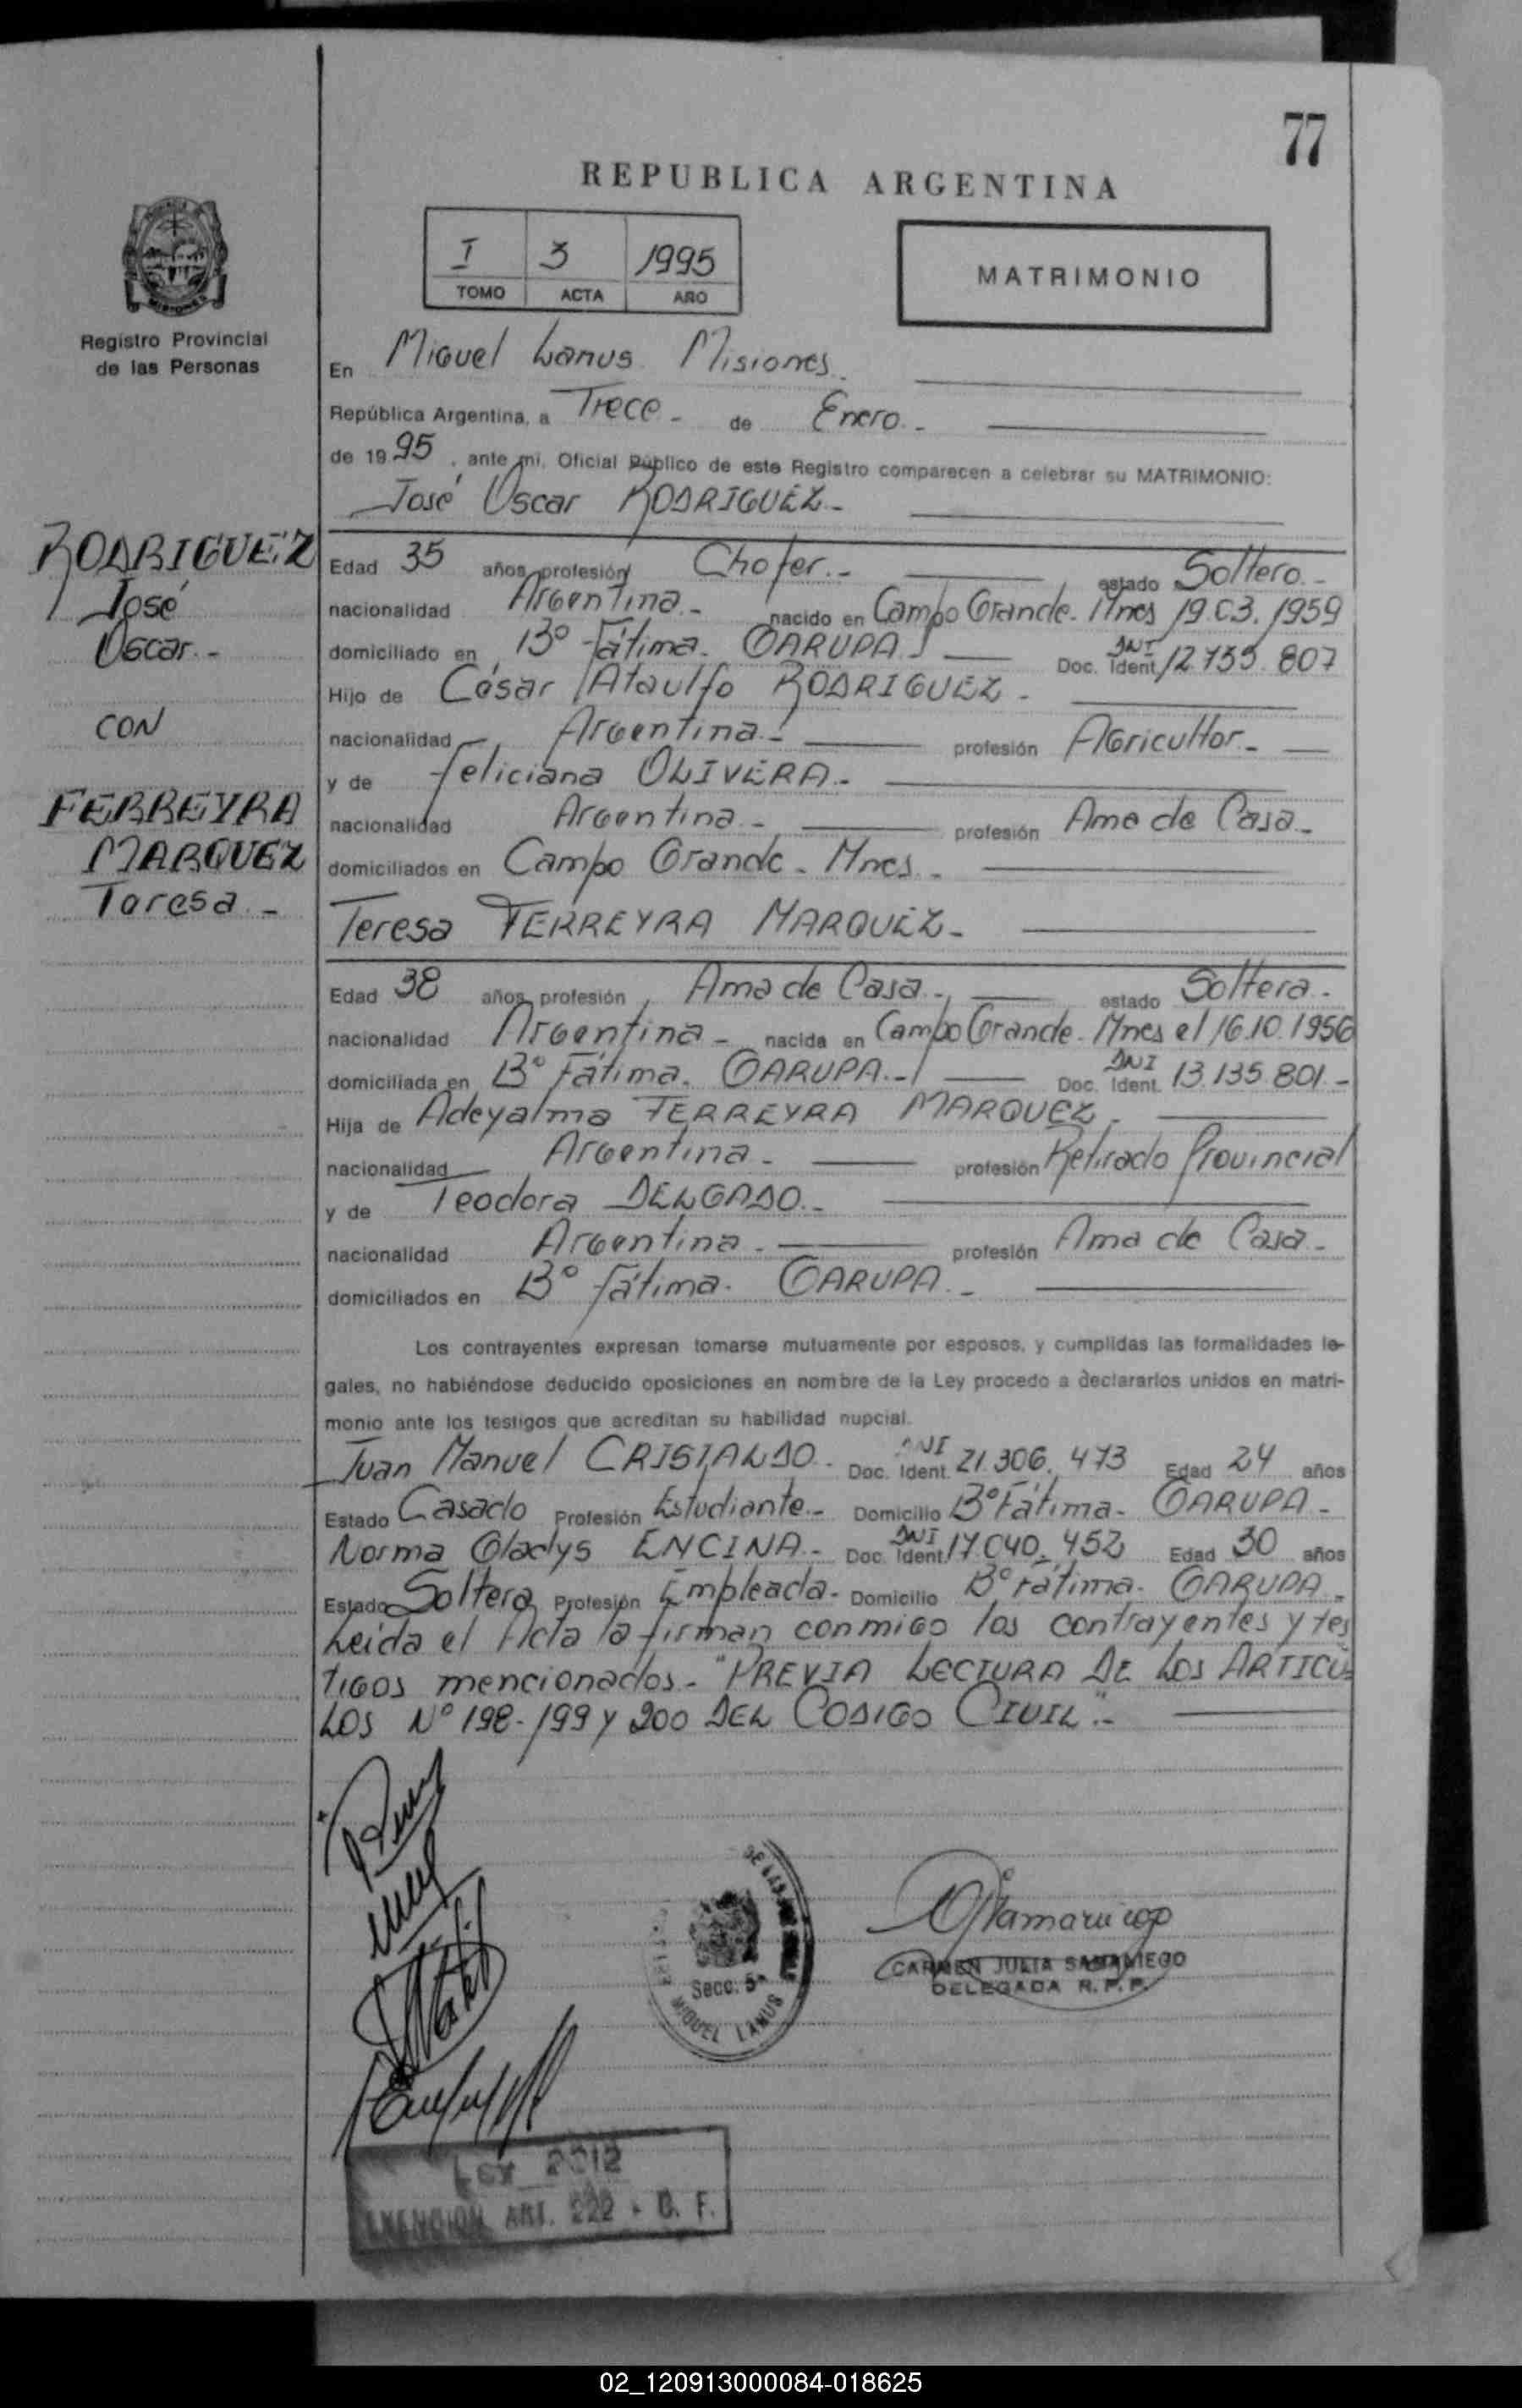 77
REPUBLICA ARGENTINA
I 3 1995
TOMO ACTA AÑO
MATRIMONIO
Registro Provincial
de las Personas
En Miguel Lanus Misiones
República Argentina, a Trece - de Enero -
de 19 95, ante mi, Oficial Público de este Registro comparecen a celebrar su MATRIMONIO:
José Oscar RODRIGUEZ -
RODRIGUEZ
José
Oscar -
CON
FERREYRA
MARQUEZ
Teresa -
Edad 35 años profesión Chofer.- estado Soltero -
nacionalidad Argentina.- nacido en Campo Grande - Mnes 19.03.1959
domiciliado en B° Fátima. GARUPA DNI Doc. Ident. 12.755.807
Hijo de César Ataulfo RODRIGUEZ -
nacionalidad Argentina - profesión Agricultor -
y de Feliciana OLIVERA -
nacionalidad Argentina - profesión Ama de Casa -
domiciliados en Campo Grande - Mnes -
Teresa FERREYRA MARQUEZ -
Edad 38 años profesión Ama de Casa - estado Soltera -
nacionalidad Argentina - nacida en Campo Grande - Mnes el 16.10.1956
domiciliada en B° Fátima. GARUPA.- DNI Doc. Ident. 13.135.801 -
Hija de Adeyalma FERREYRA MARQUEZ -
nacionalidad Argentina - profesión Retirado Provincial
y de Teodora DELGADO -
nacionalidad Argentina - profesión Ama de Casa -
domiciliados en B° Fátima. GARUPA -
Los contrayentes expresan tomarse mutuamente por esposos, y cumplidas las formalidades le-
gales, no habiéndose deducido oposiciones en nombre de la Ley procedo a declararlos unidos en matri-
monio ante los testigos que acreditan su habilidad nupcial.
Juan Manuel CRISTALDO. DNI Doc. Ident. 21.306.473 Edad 24 años
Estado Casado Profesión Estudiante.- Domicilio B° Fátima - GARUPA -
Norma Gladys ENCINA - DNI Doc. Ident. 17.040.452 Edad 30 años
Estado Soltera Profesión Empleada - Domicilio B° Fátima - GARUPA -
Leida el Acta la firman conmigo los contrayentes y tes
tigos mencionados - "PREVIA LECTURA DE LOS ARTICU-
LOS N° 198-199 y 200 DEL CODIGO CIVIL".-
Secc. 5ª
MIGUEL LANUS
CARMEN JULIA SAMANIEGO
DELEGADA R.P.P.
Ley 2012
EXENCION ART. 222 - C. F.
02_120913000084-018625